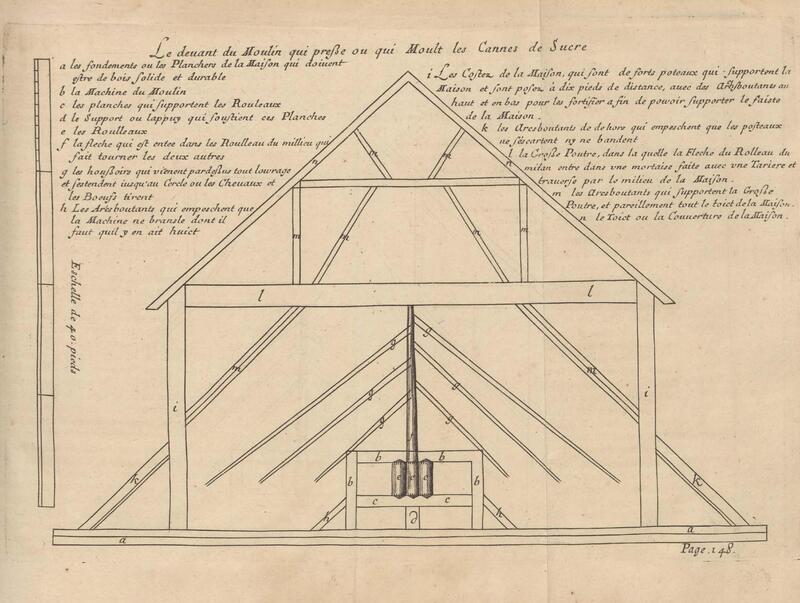 Le devant du Moulin qui presse ou qui Moult les Cannes de Sucre
a les fondements ou les Planchers de la Maison qui doiuent
estre de bois solide et durable
b la Machine du Moulin
c les planches qui supportent les Rouleaux
d le Support ou lappuy qui soustient ces Planches
e les Roulleaux
f la fleche qui est entee dans les Roulleau du millieu qui
fait tourner les deux autres
g les houssoirs qui vienent pardessus tout louvrage
et s'estendent iusqu'au Cercle ou les Cheuaux et
les Boeufs tirent
h Les Arcsboutants qui empeschent que
la Machine ne bransle dont il
faut quil y en ait huict
i Les Costez de la Maison, qui sont de forts poteaux qui supportent la
Maison et sont posez à dix pieds de distance, avec des Arcsboutants au
haut et en bas pour les fortifier afin de pouvoir supporter le faiste
de la Maison.
k les Arcsboutants de dehors qui empeschent que les posteaux
ne s'escartent ny ne bandent
l la Grosse Poutre, dans la quelle la Fleche du Rolleau du
milan entre dans vne mortaise faite auec vne Tariere et
trauerse par le milieu de la Maison.
m les Arcsboutants qui supportent la Grosse
Poutre, et pareillement tout le toict de la Maison.
n le Toict ou la Couuerture de la Maison.
Eschelle de 40 pieds
n
n
m
m
m
m
m
m
l
l
g
g
g
g
g
g
m
m
i
i
f
b
b
b
b
e
e
e
c
c
k
k
h
h
d
a
a
Page. 148.